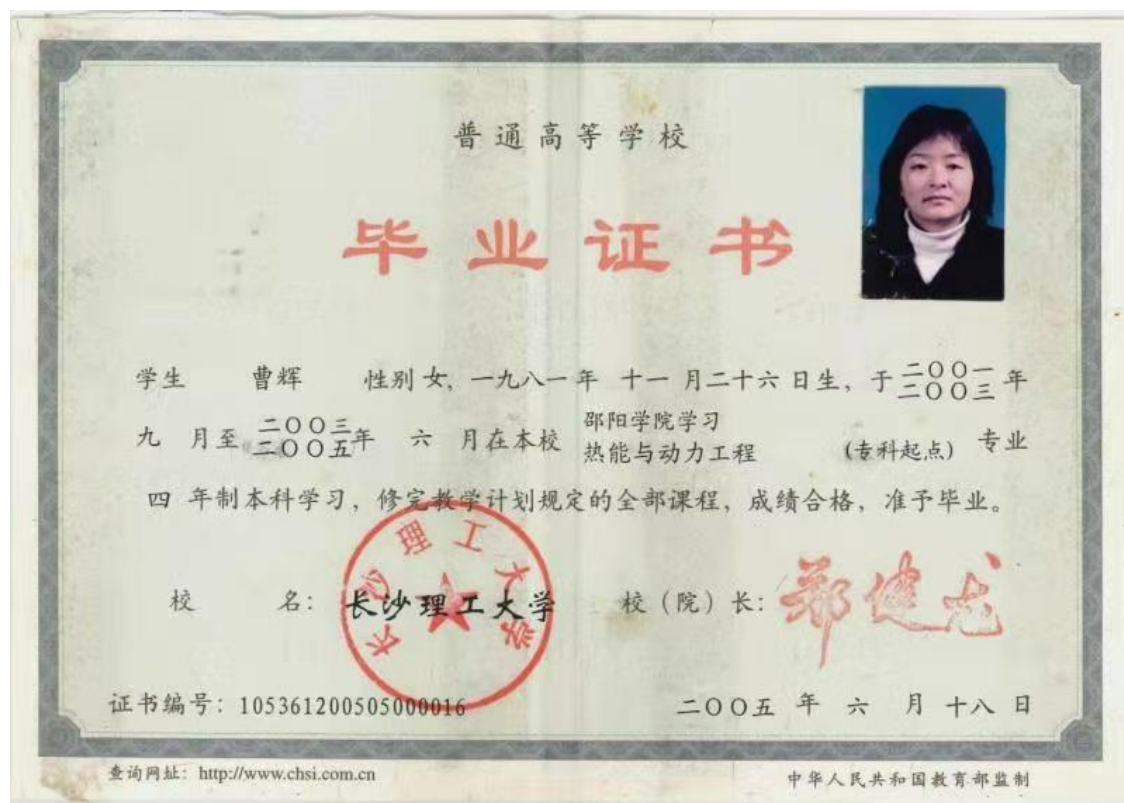 普通高等学校
毕业证书
学生 曹辉 性别 女, 一九八一年 十一 月二十六 日生, 于 二〇〇一 二〇〇三 年
九 月至 二〇〇三 二〇〇五 年 六 月在本校 邵阳学院学习 热能与动力工程 (专科起点) 专业
四 年制本科学习, 修完教学计划规定的全部课程, 成绩合格, 准予毕业。
长沙理工大学
校 名: 长沙理工大学 校(院)长: 郑健龙
证书编号: 105361200505000016 二〇〇五 年 六 月 十八 日
查询网址: http://www.chsi.com.cn 中华人民共和国教育部监制